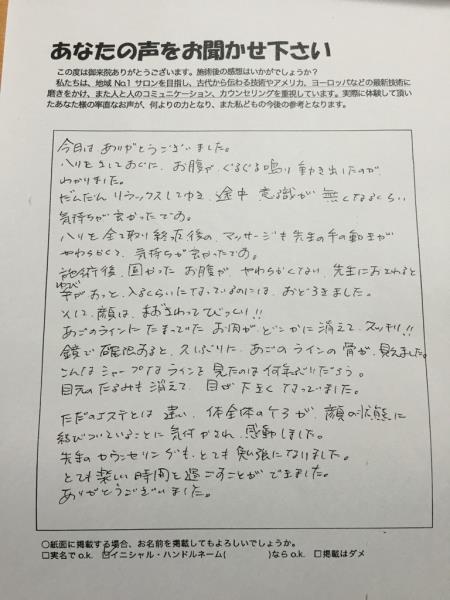 あなたの声をお聞かせ下さい
この度は御来院ありがとうございます。施術後の感想はいかがでしょうか？
私たちは、地域 No1 サロンを目指し、古代から伝わる技術やアメリカ、ヨーロッパなどの最新技術に
磨きをかけ、また人と人のコミュニケーション、カウンセリングを重視しています。実際に体験して頂い
たあなた様の率直なお声が、何よりの力となり、また私どもの今後の参考となります。
今日は ありがとうございました。
ハリをさしてすぐに、お腹が、ぐるぐる鳴り 動き出したのが、
わかりました。
だんだん リラックスしてゆき、途中 意識が 無くなるくらい
気持ちが良かったです。
ハリを全て取り終った後の、マッサージも先生の手の動きが
やわらかくて、気持ちが良かったです。
施術後、固かった お腹が、やわらかくてない、先生におされると
ゆびが すっと、入るくらいになっているのには、おどろきました。
そして、顔は、まずさわってびっくり!!
あごのラインに たまっていた お肉が、どこかに消えて、スッキリ!!
鏡で 確認すると、久しぶりに、あごのラインの骨が、見えました。
こんな シャープな ラインを 見たのは 何年ぶりだろう。
目元の たるみも 消えて、目が 大きく なっていました。
ただのエステとは 違い、体全体のケアが、顔の状態に
結びついていることに 気付かされ、感動しました。
先生の カウンセリングも、とても 勉強になりました。
とても 楽しい 時間を 過ごすことが できました。
ありがとうございました。
○紙面に掲載する場合、お名前を掲載してもよろしいでしょうか。
□実名でo.k. ☑イニシャル・ハンドルネーム( )ならo.k. □掲載はダメ